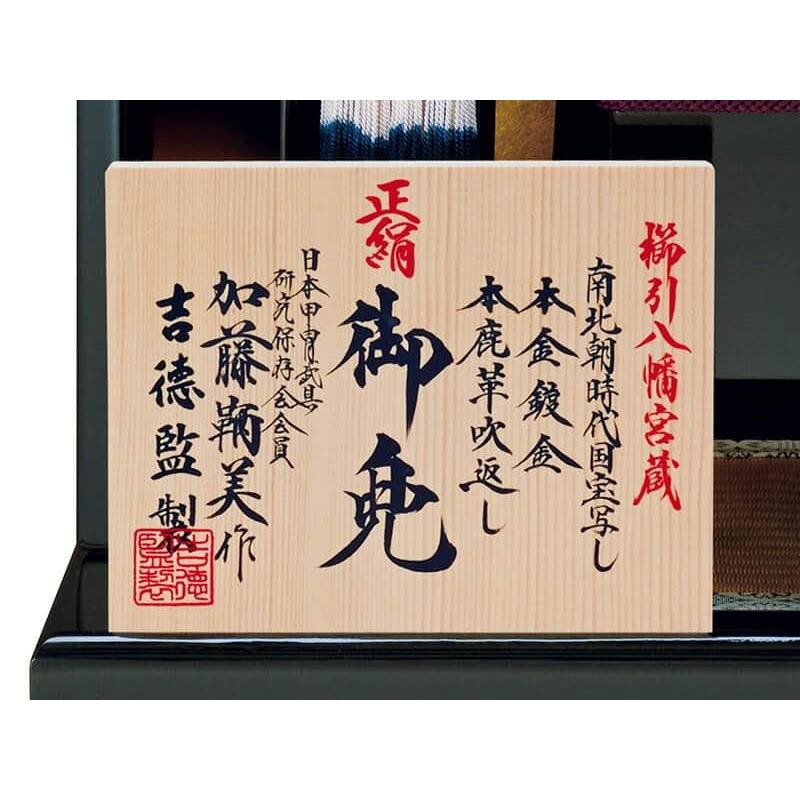 櫛引八幡宮蔵
南北朝時代国宝写し
本金鍍金
本鹿革吹返し
正絹
御免
日本甲冑武具
研究保存会会員
加藤鞆美作
吉德監製
吉德監製